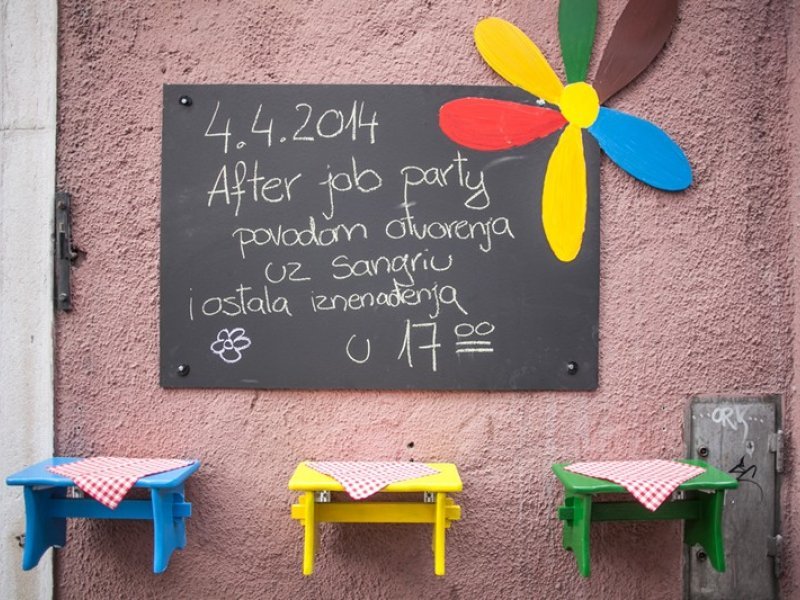 4.4.2014
After job party
povodom otvorenja
uz sangriu
i ostala iznenađenja
u 17 00
ORK